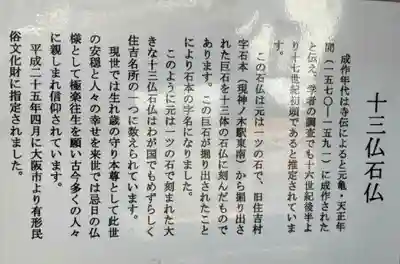 十三仏石仏
成作年代は寺伝によると元亀・天正年
間（一五七〇〜一五九一）に成作された
と伝え、学者の調査でも十六世紀後半よ
り十七世紀初頭であると推定されていま
す。
この石仏は元は一ツの石で、旧住吉村
字石本（現神ノ木駅東南）から掘り出さ
れた巨石を十三体の石仏に刻んだもので
あります。この巨石が掘り出されたこと
により石本の字名になりました。
このように元は一ツの石で刻まれた大
きな十三仏石仏はわが国でもめずらしく
住吉名所の一つに数えられています。
現世では生れ歳の守り本尊として此世
の安穏と人々の幸せを来世では忌日の仏
様として極楽往生を願い古今多くの人々
に親しまれ信仰されています。
平成二十五年四月に大阪市より有形民
俗文化財に指定されました。